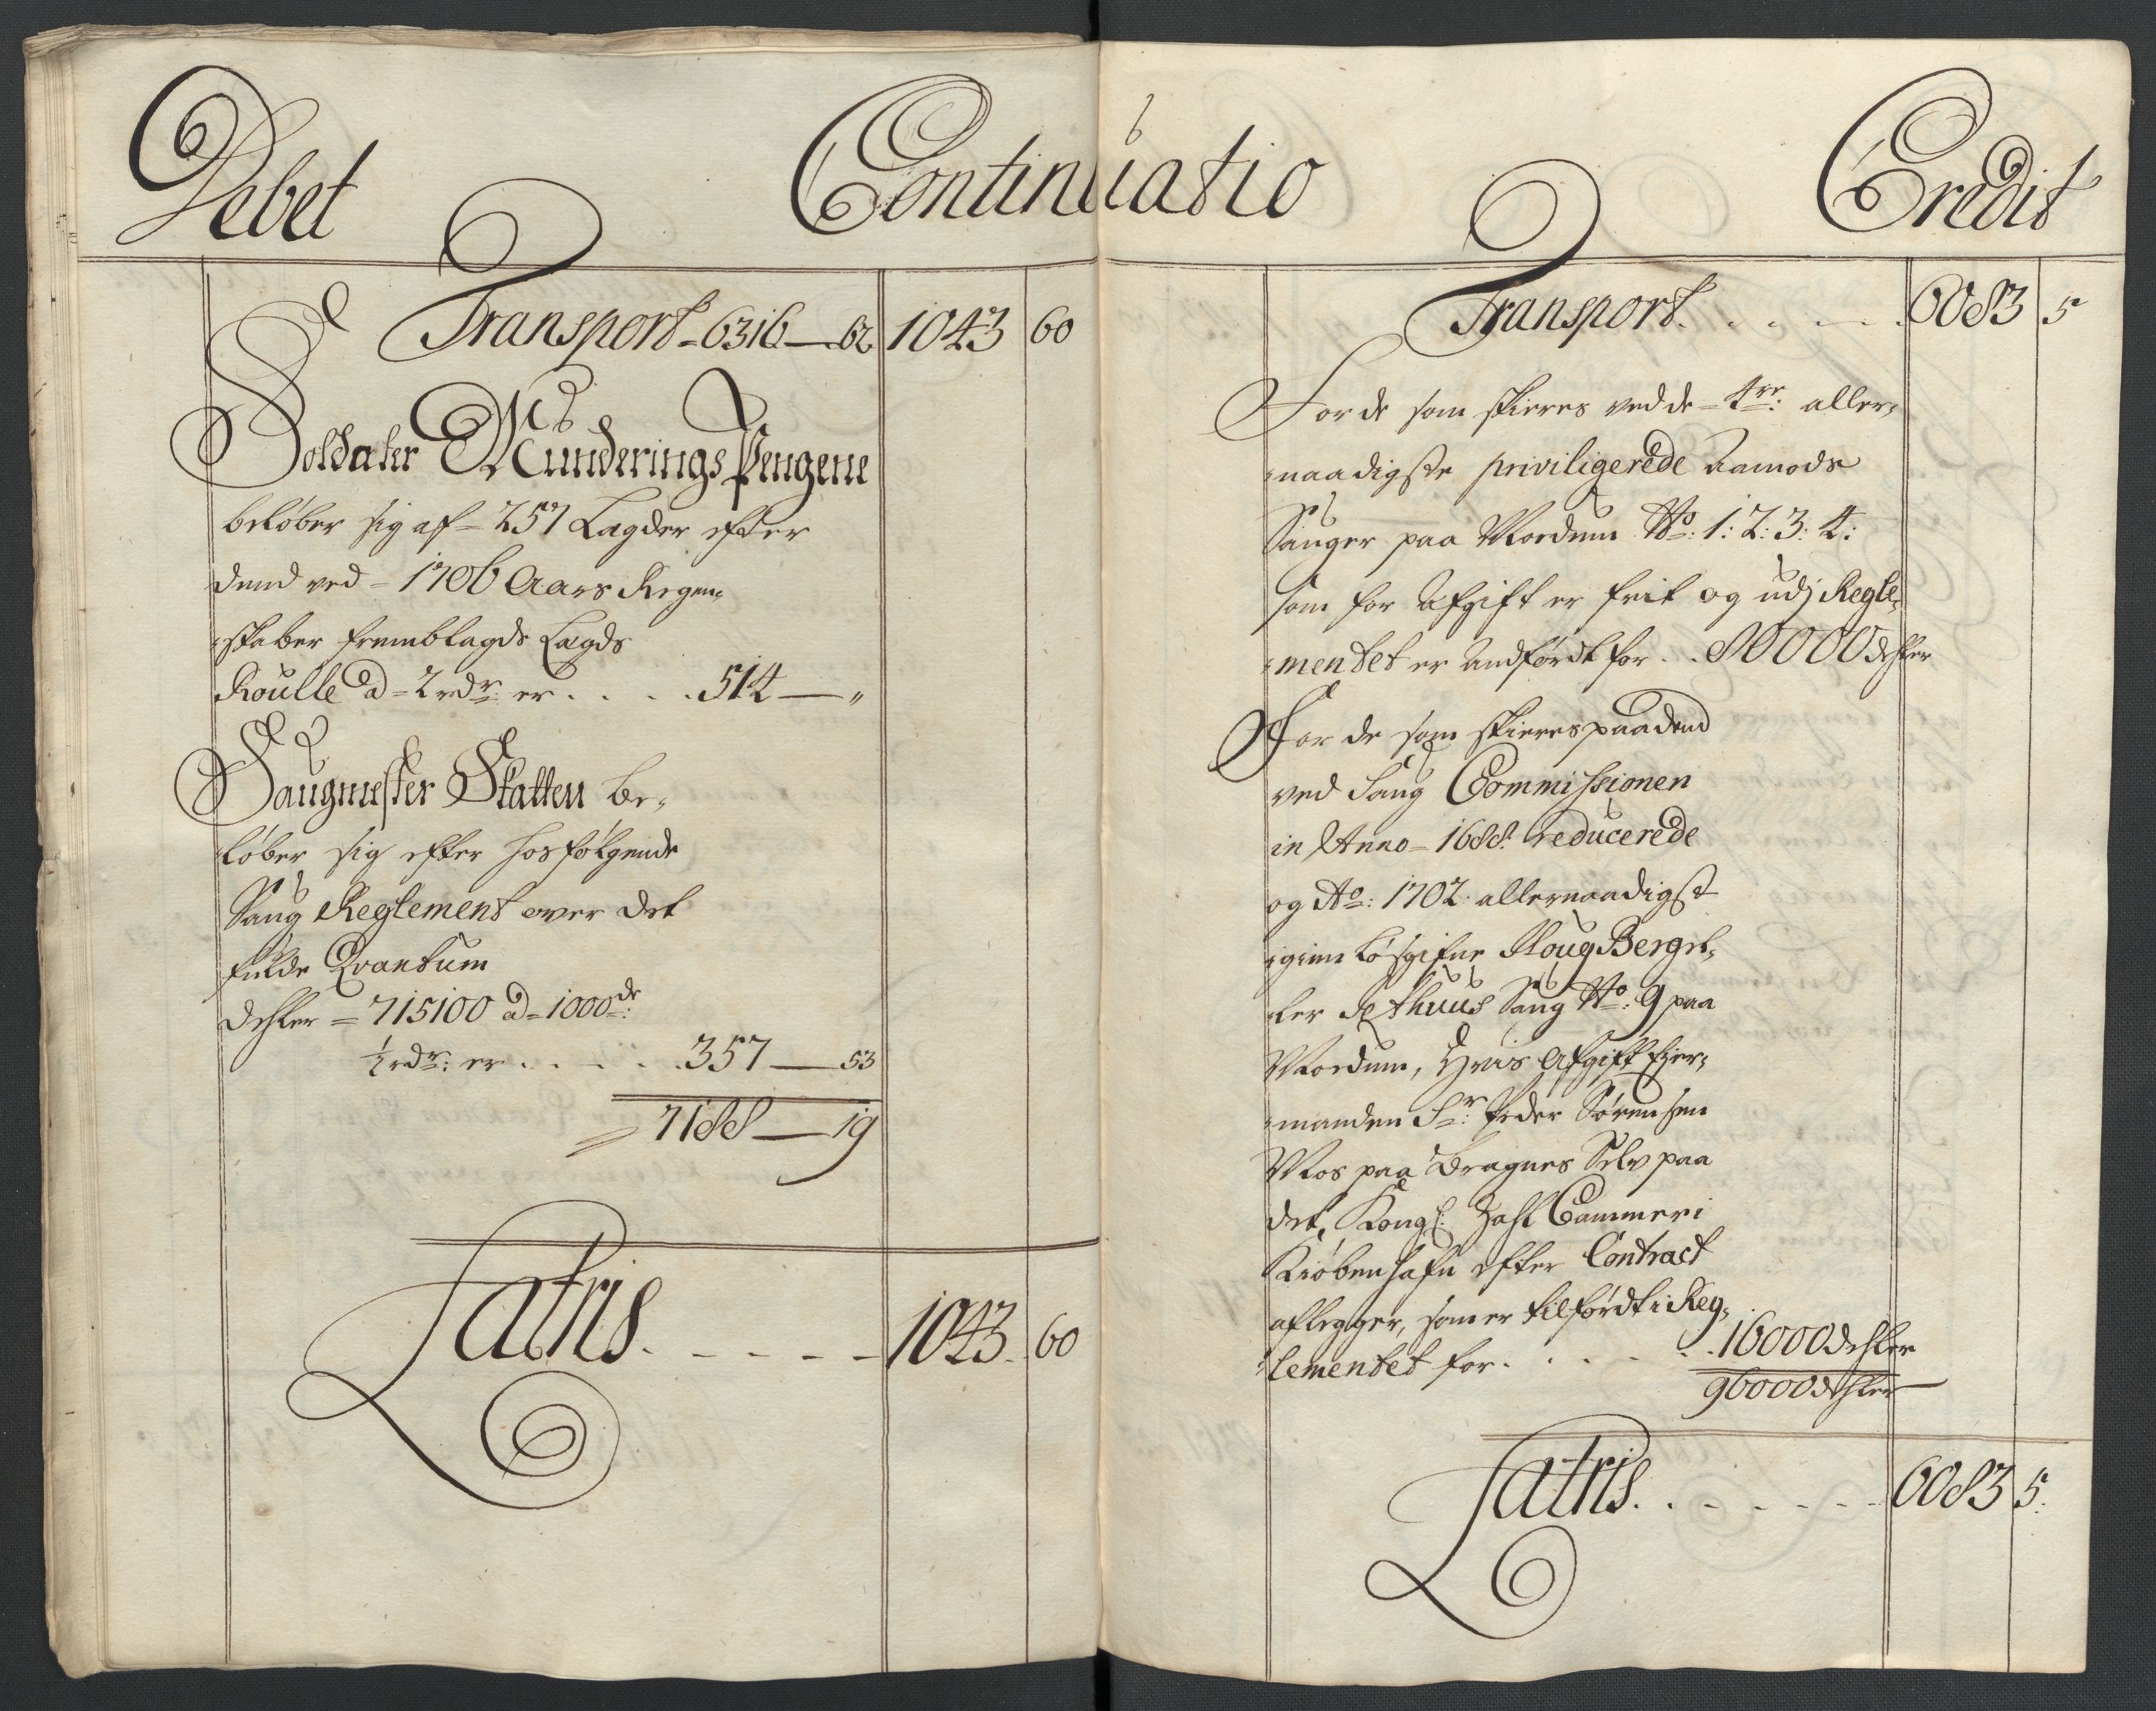 Debet Continuatio Credit
Transport = 6316 — 62 1043 60
Soldater Munderings Pengene
beløber sig af = 257 Lægder efter
dend ved = 1706 Aars Regen-
skaber fremblagde Lægds
Roulle a = 2 rdr: er . . . . 514 — "
Saugmester Skatten be-
løber sig efter hosfølgende
Saug Reglement over det
fulde Qvantum
dehler = 715100 a = 1000de:
½ rdr: er . . . . . 357 — 53
7188 — 19
Latris. . . . . . 1043 60
Transport. . . . . 6083 5
For de som skieres ved de = 4re: aller-
naadigste priviligerede Aamods
Sauger paa Modum No: 1: 2: 3: 4:
som for Afgift er frit og udj Regle-
mentet er Andførdt for . . 80000 dehler
For de som skieres paa dend
ved Saug Commissionen
in Anno = 1688. reducerede
og Ao: 1702. allernaadigst
igien løsgifne Saug No: 9 paa
Modum, Hvis Afgift Eier-
manden Sr: Peder Sørensen
Moss paa Bragnes Selv paa
det Kongl: Zahl Cammer i
Kiøbenhafn efter Contract
aflegger, som er tilførdt i Reg-
lementet for . . . . . . 16000 dehler
96000 dehler
Latris. . . . . . . 6083 5.